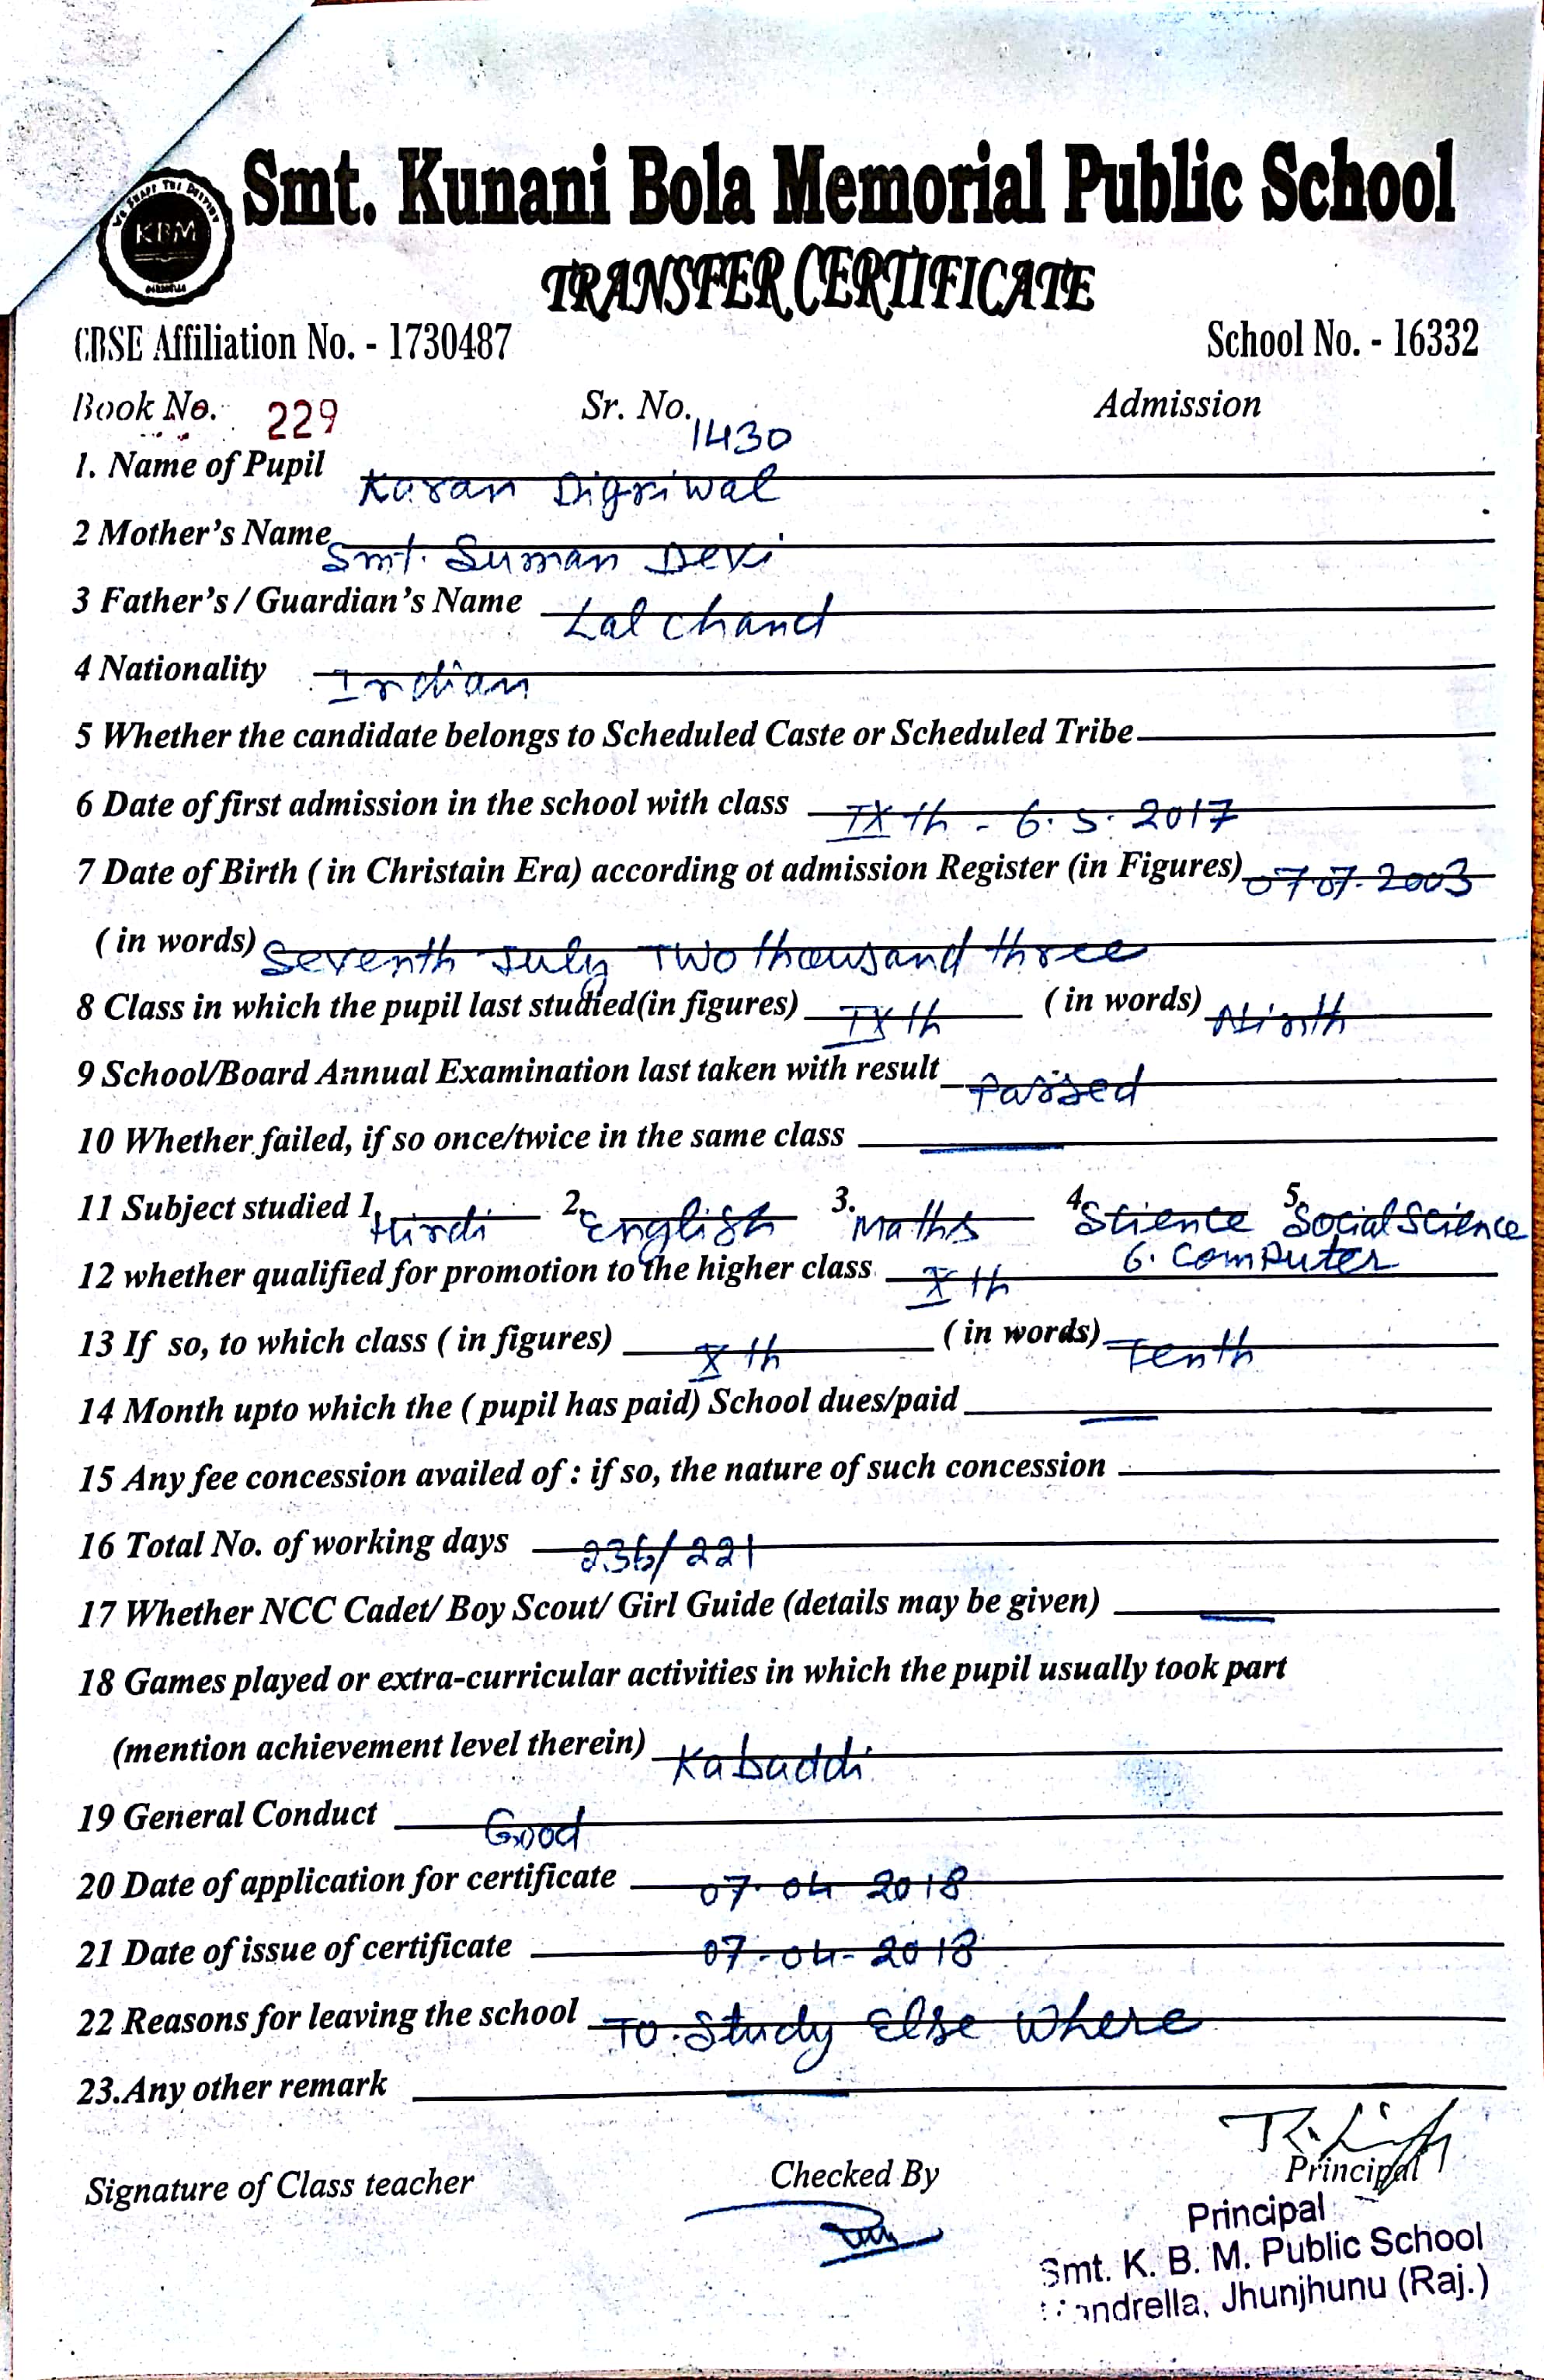 WE SHAPE THE DESTINY
KBM
Smt. Kunani Bola Memorial Public School
TRANSFER CERTIFICATE
CBSE Affiliation No. - 1730487 School No. - 16332
Book No. 229 Sr. No. 1430 Admission
1. Name of Pupil Karan Digriwal
2 Mother's Name Smt. Suman Devi
3 Father's / Guardian's Name Lal chand
4 Nationality Indian
5 Whether the candidate belongs to Scheduled Caste or Scheduled Tribe
6 Date of first admission in the school with class IXth - 6.5.2017
7 Date of Birth ( in Christain Era) according ot admission Register (in Figures) 07.07.2003
( in words) Seventh July Two thousand three
8 Class in which the pupil last studied(in figures) IXth ( in words) Ninth
9 School/Board Annual Examination last taken with result Passed
10 Whether failed, if so once/twice in the same class
11 Subject studied 1. Hindi 2. English 3. Maths 4 Science 5. Social Science
6. Computer
12 whether qualified for promotion to the higher class Xth
13 If so, to which class ( in figures) Xth ( in words) Tenth
14 Month upto which the ( pupil has paid) School dues/paid
15 Any fee concession availed of : if so, the nature of such concession
16 Total No. of working days 236/221
17 Whether NCC Cadet/ Boy Scout/ Girl Guide (details may be given)
18 Games played or extra-curricular activities in which the pupil usually took part
(mention achievement level therein) Kabaddi
19 General Conduct Good
20 Date of application for certificate 07.04 2018
21 Date of issue of certificate 07-04-2018
22 Reasons for leaving the school To Study Else Where
23.Any other remark
Signature of Class teacher Checked By Principal
Principal
Smt. K. B. M. Public School
Jhunjhunu (Raj.)